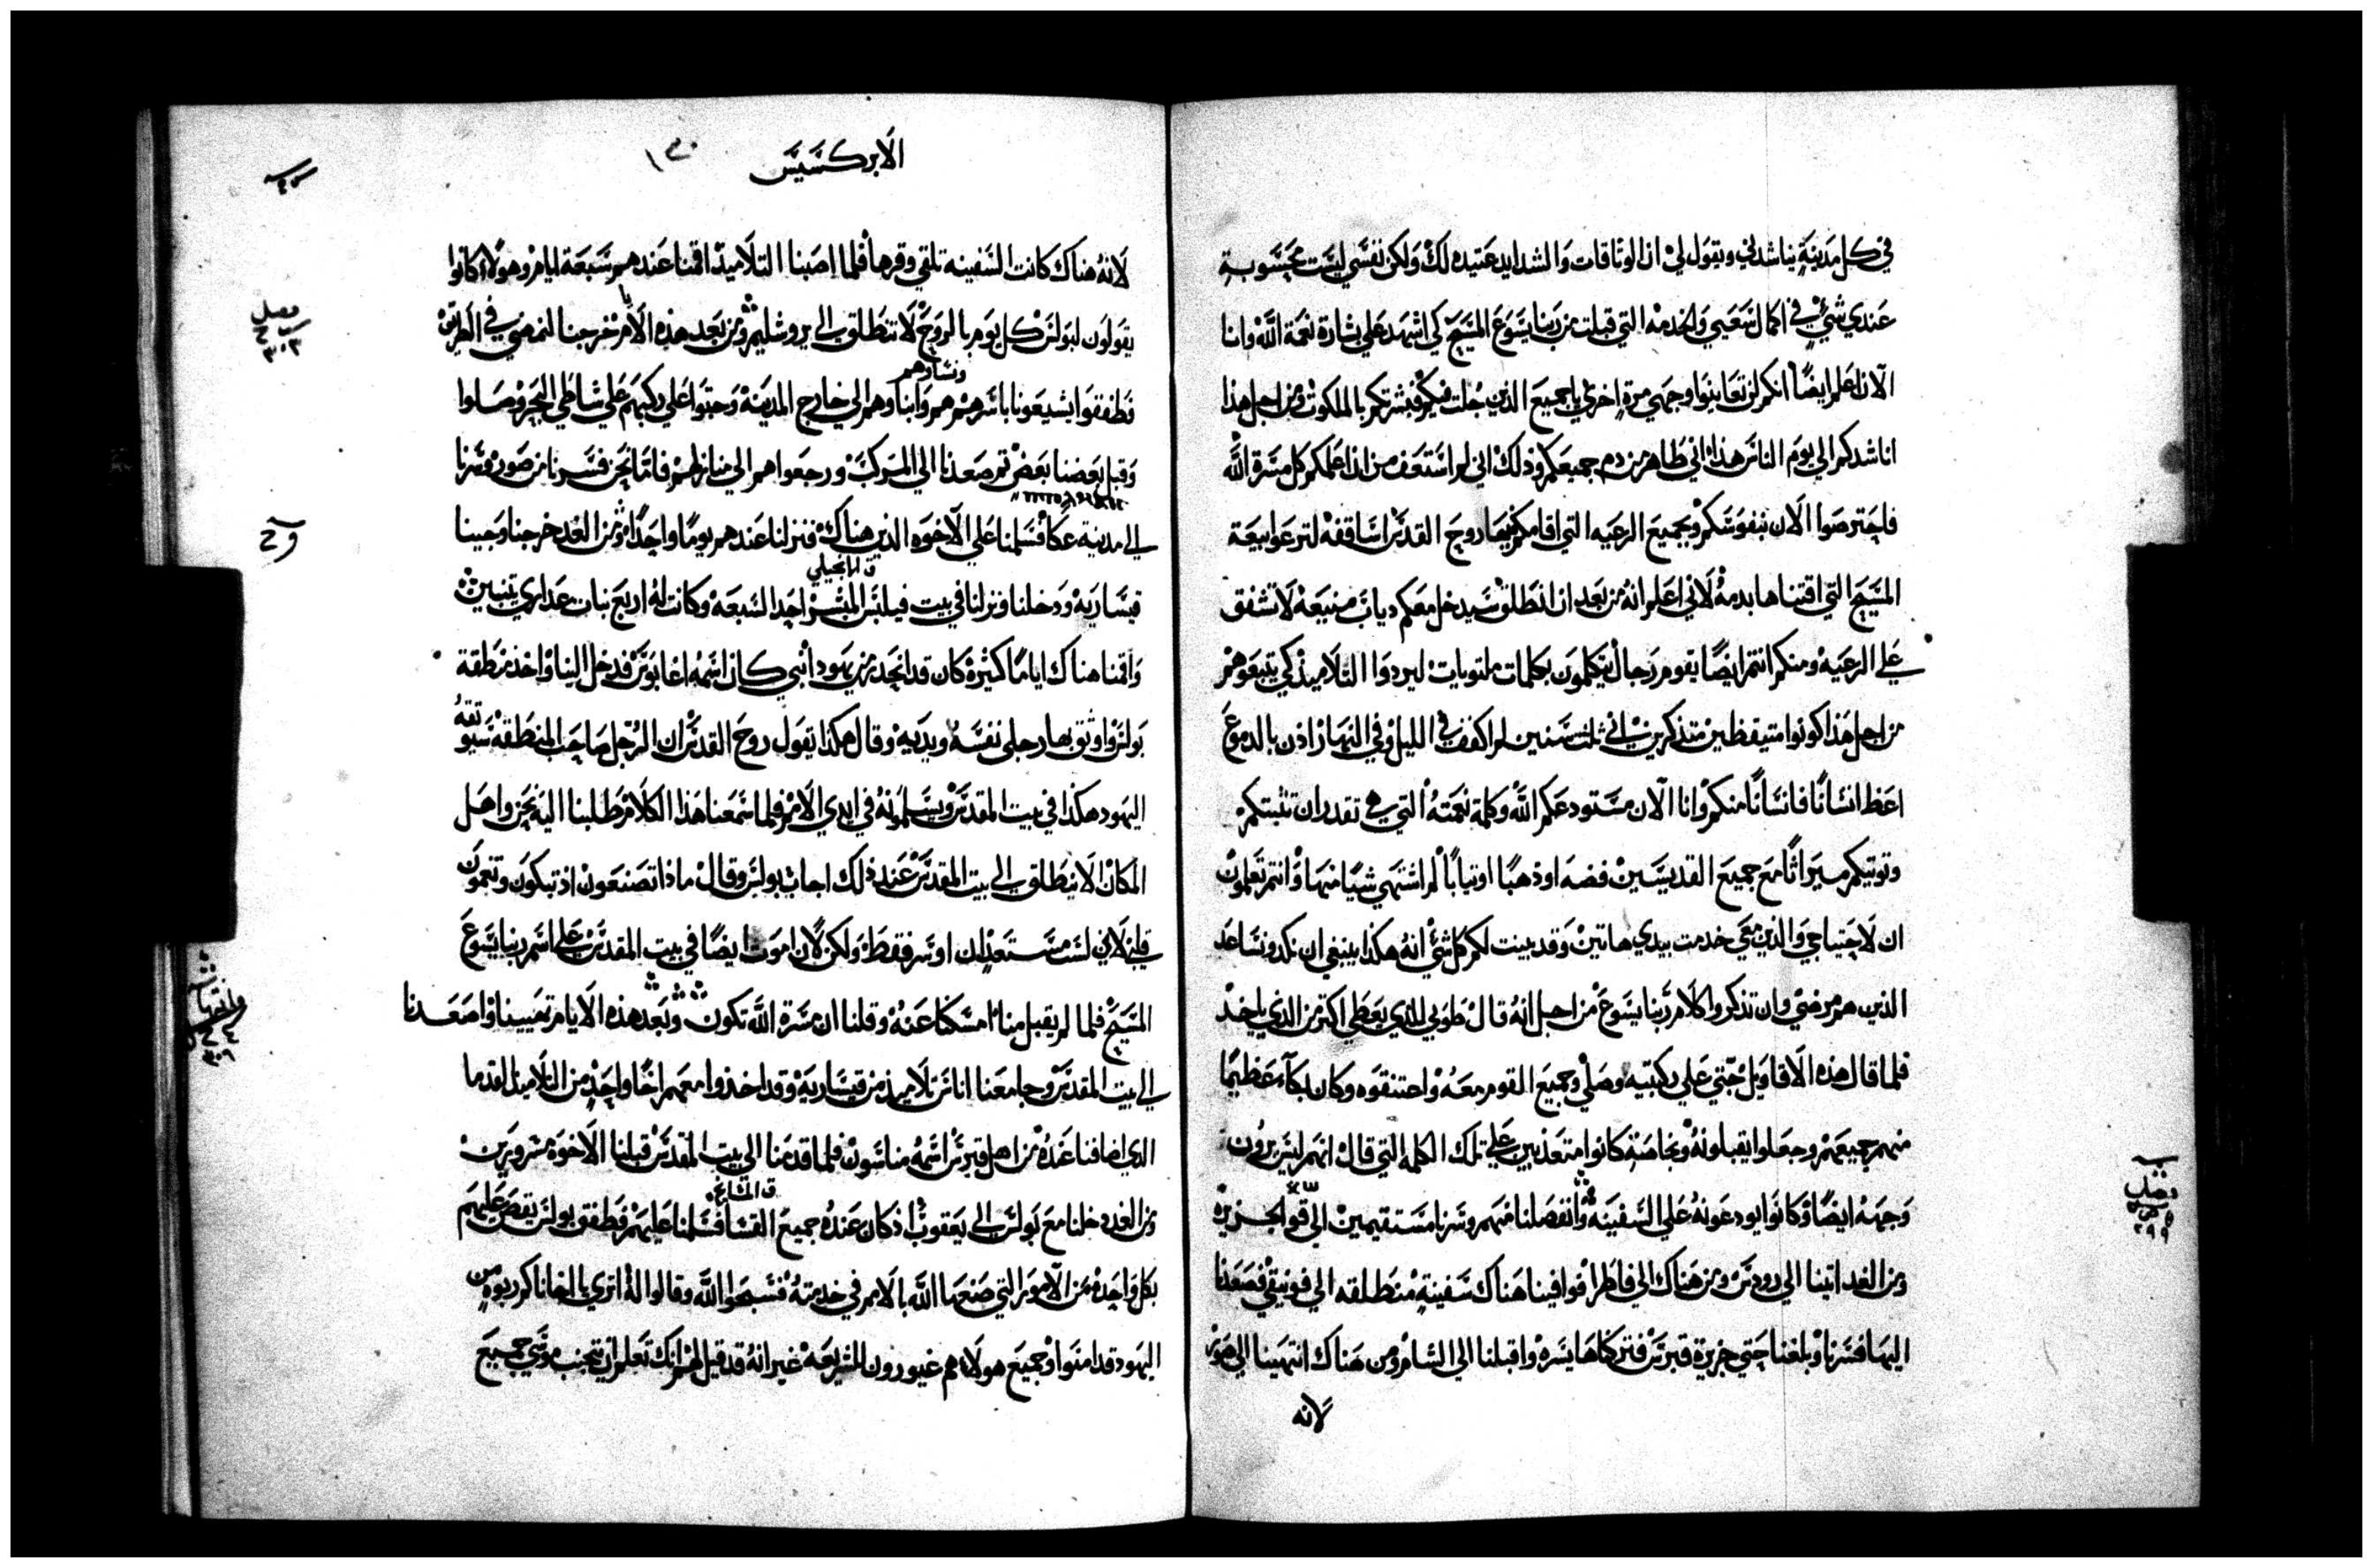 في كل مدينةٍ يناشدني ويقول لي ان الوثاقات والشدايد عتيده لك ولكن نفسي ليست محسوبةٍ
عندي شيءٍ في اكمال سعيي والخدمه التي قبلت من ربنا يسوع المسيح كي اشهد علي بشارة نعمة الله وانا
الان اعلم ايضًا انكم لن تعاينوا وجهي مرةٍ اخري يا جميع الذين جُلت فيكم فبشرتكم بالملكوت ومن اجل هذا
اناشدكم الي يوم الناس هذا اني طاهر من دم جميعكم وذلك اني لم استعف من اذ اعلمكم كل مسرة الله
فاحترصوا الان بنفوسكم وبجميع الرعيه التي اقامكم فيها روح القدس اساقفه لترعوا بيعة
المسيح التي اقتناها بدمه لاني اعلم انه من بعد ان انطلق سيدخل معكم دياب منيعه لا تشفق
علي الرعيه ومنكم انتم ايضًا يقوم رجال يتكلمون بكلمات ملتويات ليردوا التلاميذ كي يتبعوهم
من اجل هذا كونوا متيقظين متذكرين اني ثلث سنين لم اكفف في الليل وفي النهار اذ بالدموع
اعظ انسانًا فانسانًا منكم وانا الان مستودعكم الله وكلمة نعمته التي هي تقدر ان تثبتكم
وتوتيكم ميراثًا مع جميع القديسين فضه او ذهبًا او تيابًا لم اشتهي شيًا منها وانتم تعلمون
ان لاحتياجي والذين معي خدمت بيدي هاتين وقد بينت لكم كل شيء انه هكذا ينبغي ان نكد ونساعد
الذين هم مرضي وان تذكروا كلام ربنا يسوع من اجل انه قال طوبي للذي يعطي اكتر من الذي ياخذ
فلما قال هذه الاقاويل جتي علي ركبتيه وصلي وجميع القوم معه واحتنقوه وكان بكآء عظيمًا
منهم جميعهم وجعلوا يقبلونه وبخاصةٍ كانوا متعذبين علي تلك الكلمه التي قال انهم ليس يرون
وجهه ايضًا وكانوا يودعونه علي السفينه وانفصلنا منهم وسرنا مستقيمين الي قو الجزيره
ومن الغد اتينا الي رودس ومن هناك الي فاطرا فوافينا هناك سفينةٍ منطلقه الي فونيقي فصعدنا
اليها فسرنا وبلغنا حتي جزيرة قبرس فتركناها يسره واقبلنا الي الشام ومن هناك انتهينا الي صور
لانه
فصل
٢٩٩
الابركسيس
لانه هناك كانت السفينه تلقي وقرها فلما اصبنا التلاميذ اقمنا عندهم سبعة ايام وهولاء كانوا
يقولون لبولس كل يوم بالروح لا تنطلق الي يروشليم ومن بعد هذه الايام خرجنا لنمضي في الطريق
ونساوهم
فطفقوا يشيعونا باسرهم هم وابناوهم الي خارج المدينه وحتوا علي ركبهم علي شاطي البحر وصلوا
وقبل بعضنا بعض تم صعدنا الي المركب ورجعوا هم الي منازلهم فاما نحن فسرنا من صور وسرنا
الي مدينة عكا فسلمنا علي الاخوه الذين هناك فنزلنا عندهم يومًا واحدًا ومن الغد خرجنا وجينا
ق الانجيلي
قيساريه ودخلنا ونزلنا في بيت فيلبس المبشر احد السبعه وكانت له اربع بنات عداري يتنبين
واقمنا هناك ايامًا كثيره كان قد انحدر من يهودا نبي كان اسمه اغابوس فدخل الينا واخذ منطقة
بولس واوثق بها رجلي نفسه ويديه وقال هكذا يقول روح القدس ان الرجل صاحب المنطقه سيوثقه
اليهود هكذا في بيت المقدس ويسلمونه في ايدي الامم فلما سمعنا هذا الكلام طلبنا اليه نحن واهل
المكان الا ينطلق الي بيت المقدس عند ذلك اجاب بولس وقال ماذا تصنعون اذ تبكون وتغمون
قلبي لاني لست مستعد ان اوسر فقط ولكن لان اموت ايضًا في بيت المقدس علي اسم ربنا يسوع
المسيح فلما لم يقبل منا امسكنا عنه وقلنا ان مسرة الله تكون وبعد هذه الايام تهيينا واصعدنا
الي بيت المقدس وجا معنا اناس تلاميذ من قيساريه وقد اخذوا معهم اخًا واحدٍ من التلاميذ القدما
الذي اضافنا عنده من اهل قبرس اسمه مناسون فلما قدمنا الي بيت المقدس قبلنا الاخوه مسرورين
ق المشايخ
ومن الغد دخلنا مع بولس الي يعقوب اذ كان عنده جميع القسا فسلمنا عليهم فطفق بولس يقص عليهم
بكل واحدٍ من الامور التي صنعها الله بالامم في خدمته فسبحوا الله وقالوا له اتري يا اخانا كم ربوه من
اليهود قد امنوا وجميع هولاء هم غيورون للشريعه غير انه قد قيل لهم انك تعلم ان يتجنب موسي جميع
فصل
٣٠٢